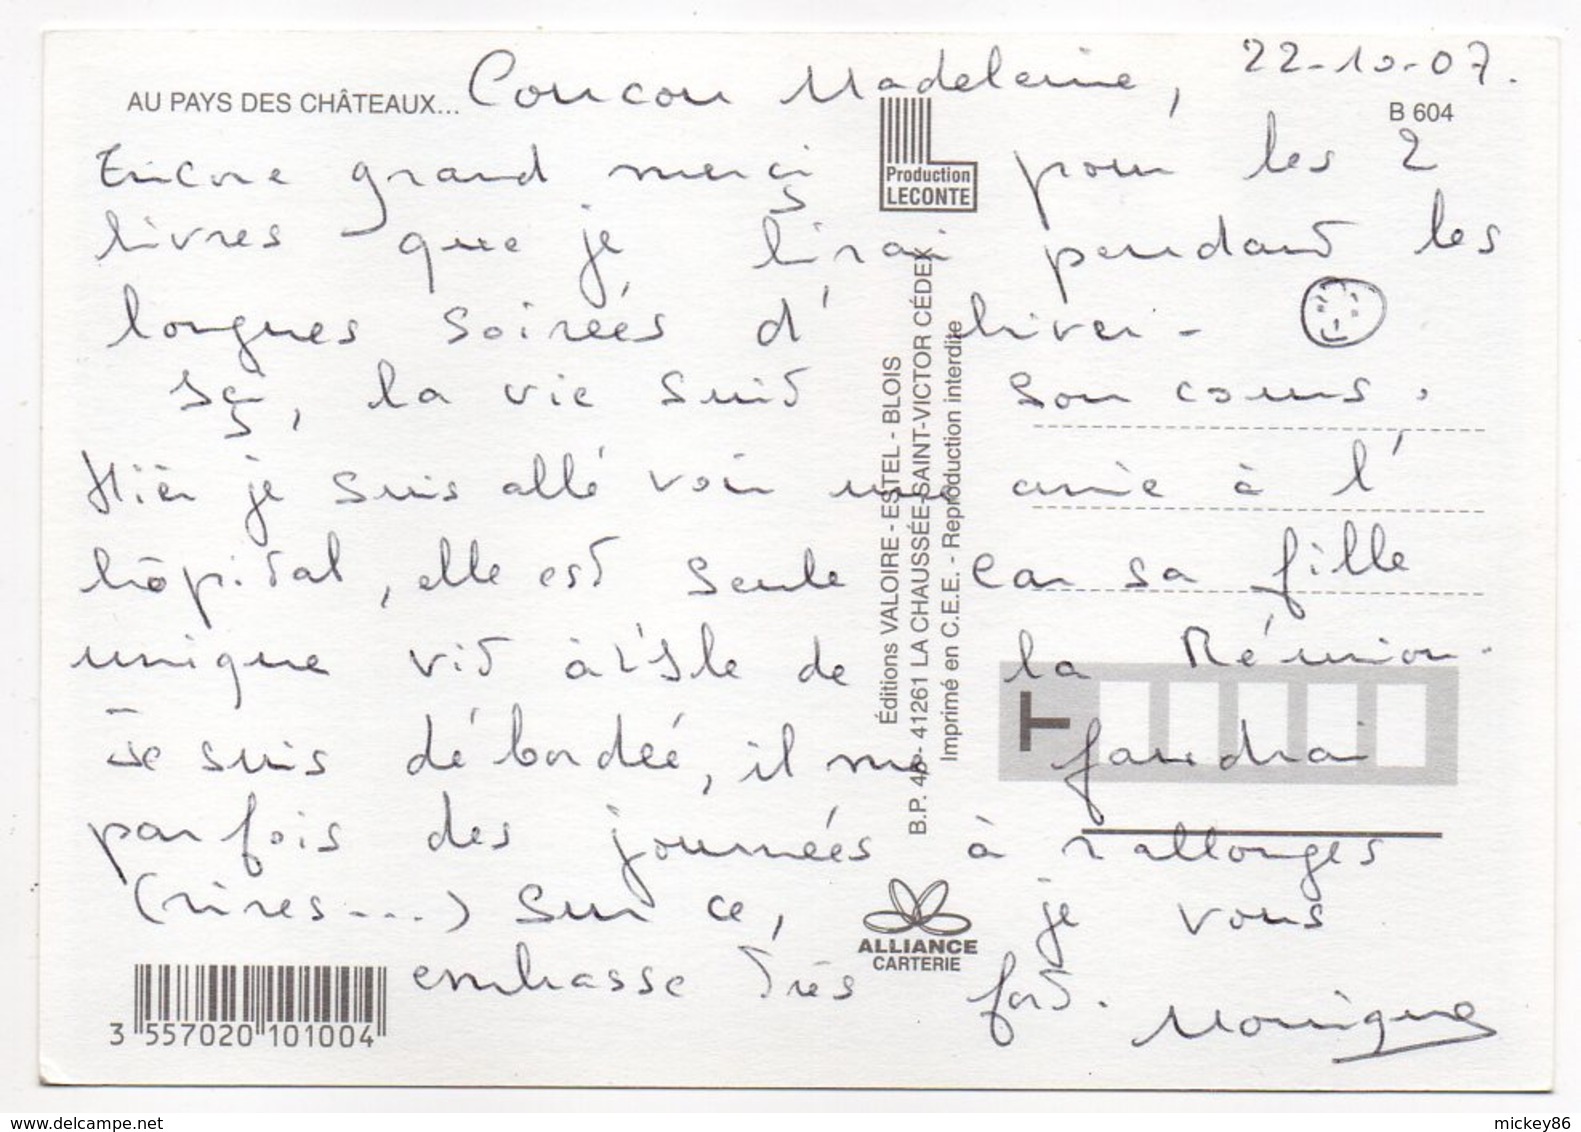 AU PAYS DES CHÂTEAUX... Coucou Madeleine, 22-10-07.
B 604
Encore grand merci pour les 2
livres que je lirai pendant les
longues soirées d'hiver -
Production
LECONTE
ça, la vie suit son cours.
Hier je suis allé voir une amie à l'
hôpital, elle est seule car sa fille
unique vit à l'Isle de la Réunion.
Je suis débordée, il me faudrai
parfois des journées à rallonges
(rires....) Sur ce, je vous
embrasse très fort.
Monique
Éditions VALOIRE - ESTEL - BLOIS
B.P. 45 - 41261 LA CHAUSSÉE-SAINT-VICTOR CÉDEX
Imprimé en C.E.E. - Reproduction interdite
T
ALLIANCE
CARTERIE
3 557020 101004
www.delcampe.net
mickey86